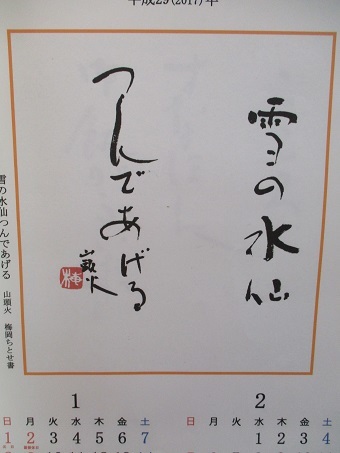 平成29(2017)年
雪の水仙
つんであげる
山頭火
梅
雪の水仙つんであげる 山頭火 梅岡ちとせ書
1
日 月 火 水 木 金 土
1 2 3 4 5 6 7
2
日 月 火 水 木 金 土
1 2 3 4